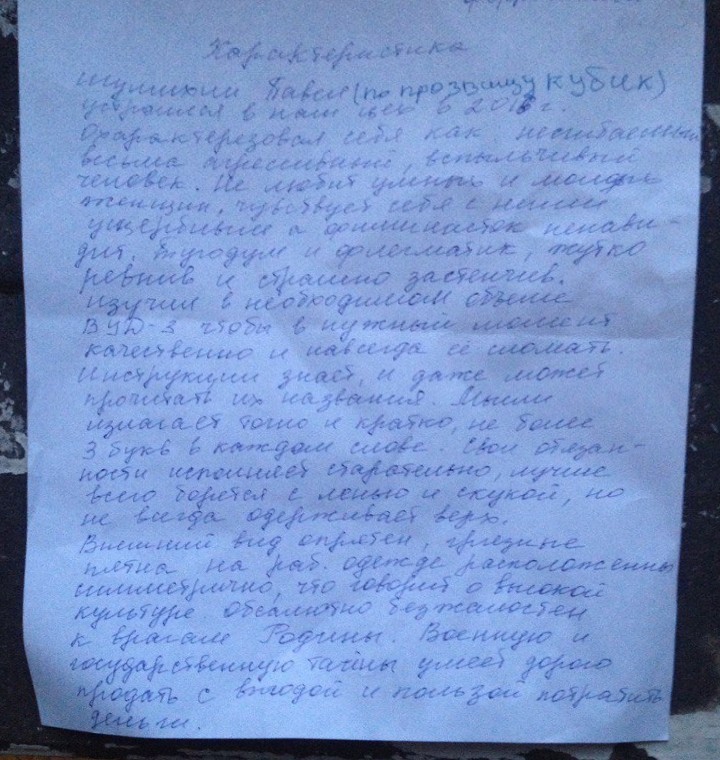 Характеристика
Шулмхин Павел (по прозвищу кубик)
устроился в наш цех в 2016 г.
Охарактерезовал себя как несгибаемый
весьма агрессивный, вспыльчивый
человек. Не любит умных и молодых
женщин, чувствует себя с ними
ущербным а феминисток ненави-
дит. Тугодум и флегматик, жутко
ревнив и страшно застенчив.
изучил в необходимом объеме
ВУД-3 чтобы в нужный момент
качественно и навсегда её сломать.
Инструкции знает, и даже может
прочитать их названия. Мысли
излагает точно и кратко, не более
3 букв в каждом слове. Свои обязан-
ности исполняет старательно, лучше
всего борется с ленью и скукой, но
не всегда одерживает верх.
Внешний вид опрятен, грязные
пятна на раб. одежде расположенны
симметрично, что говорит о высокой
культуре обсалютно безжалостен
к врагам Родины. Военную и
государственную тайны умеет дорого
продать с выгодой и пользой потратить
деньги.